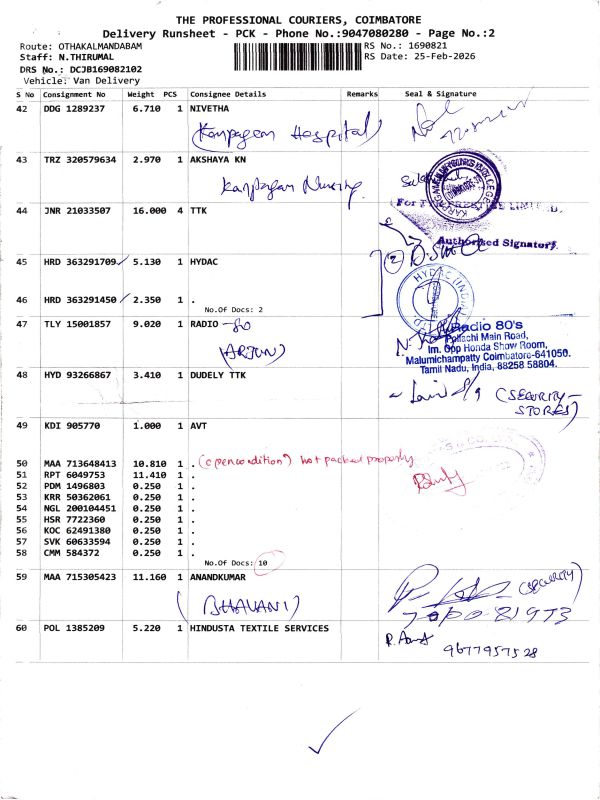 THE PROFESSIONAL COURIERS, COIMBATORE
Delivery Runsheet - PCK - Phone No.:9047080280 - Page No.:2
Route: OTHAKALMANDABAM RS No.: 1690821
Staff: N.THIRUMAL RS Date: 25-Feb-2026
DRS No.: DCJB169082102
Vehicle: Van Delivery
S No Consignment No Weight PCS Consignee Details Remarks Seal & Signature
42 DDG 1289237 6.710 1 NIVETHA
(Karpagam Hospital)
43 TRZ 320579634 2.970 1 AKSHAYA KN
Karpagam Nursing
44 JNR 21033507 16.000 4 TTK
(For LIMITED.
Authorised Signatory
45 HRD 363291709 5.130 1 HYDAC
2
46 HRD 363291450 2.350 1 .
No.Of Docs: 2
HYDAC (INDIA)
47 TLY 15001857 9.020 1 RADIO - 80
(ARJUN)
Radio 80's
Pollachi Main Road,
Im. Opp Honda Show Room,
Malumichampatty Coimbatore-641050.
Tamil Nadu, India, 88258 58804.
48 HYD 93266867 3.410 1 DUDELY TTK
(SECURITY - STORES)
49 KDI 905770 1.000 1 AVT
50 MAA 713648413 10.810 1 . (open condition) not packed properly
51 RPT 6049753 11.410 1 .
52 PDM 1496803 0.250 1 .
53 KRR 50362061 0.250 1 .
54 NGL 200104451 0.250 1 .
55 HSR 7722360 0.250 1 .
56 KOC 62491380 0.250 1 .
57 SVK 60633594 0.250 1 .
58 CMM 584372 0.250 1 .
No.Of Docs: 10
59 MAA 715305423 11.160 1 ANANDKUMAR
(BHAVANI)
(SECURITY)
60 POL 1385209 5.220 1 HINDUSTA TEXTILE SERVICES
9677957528